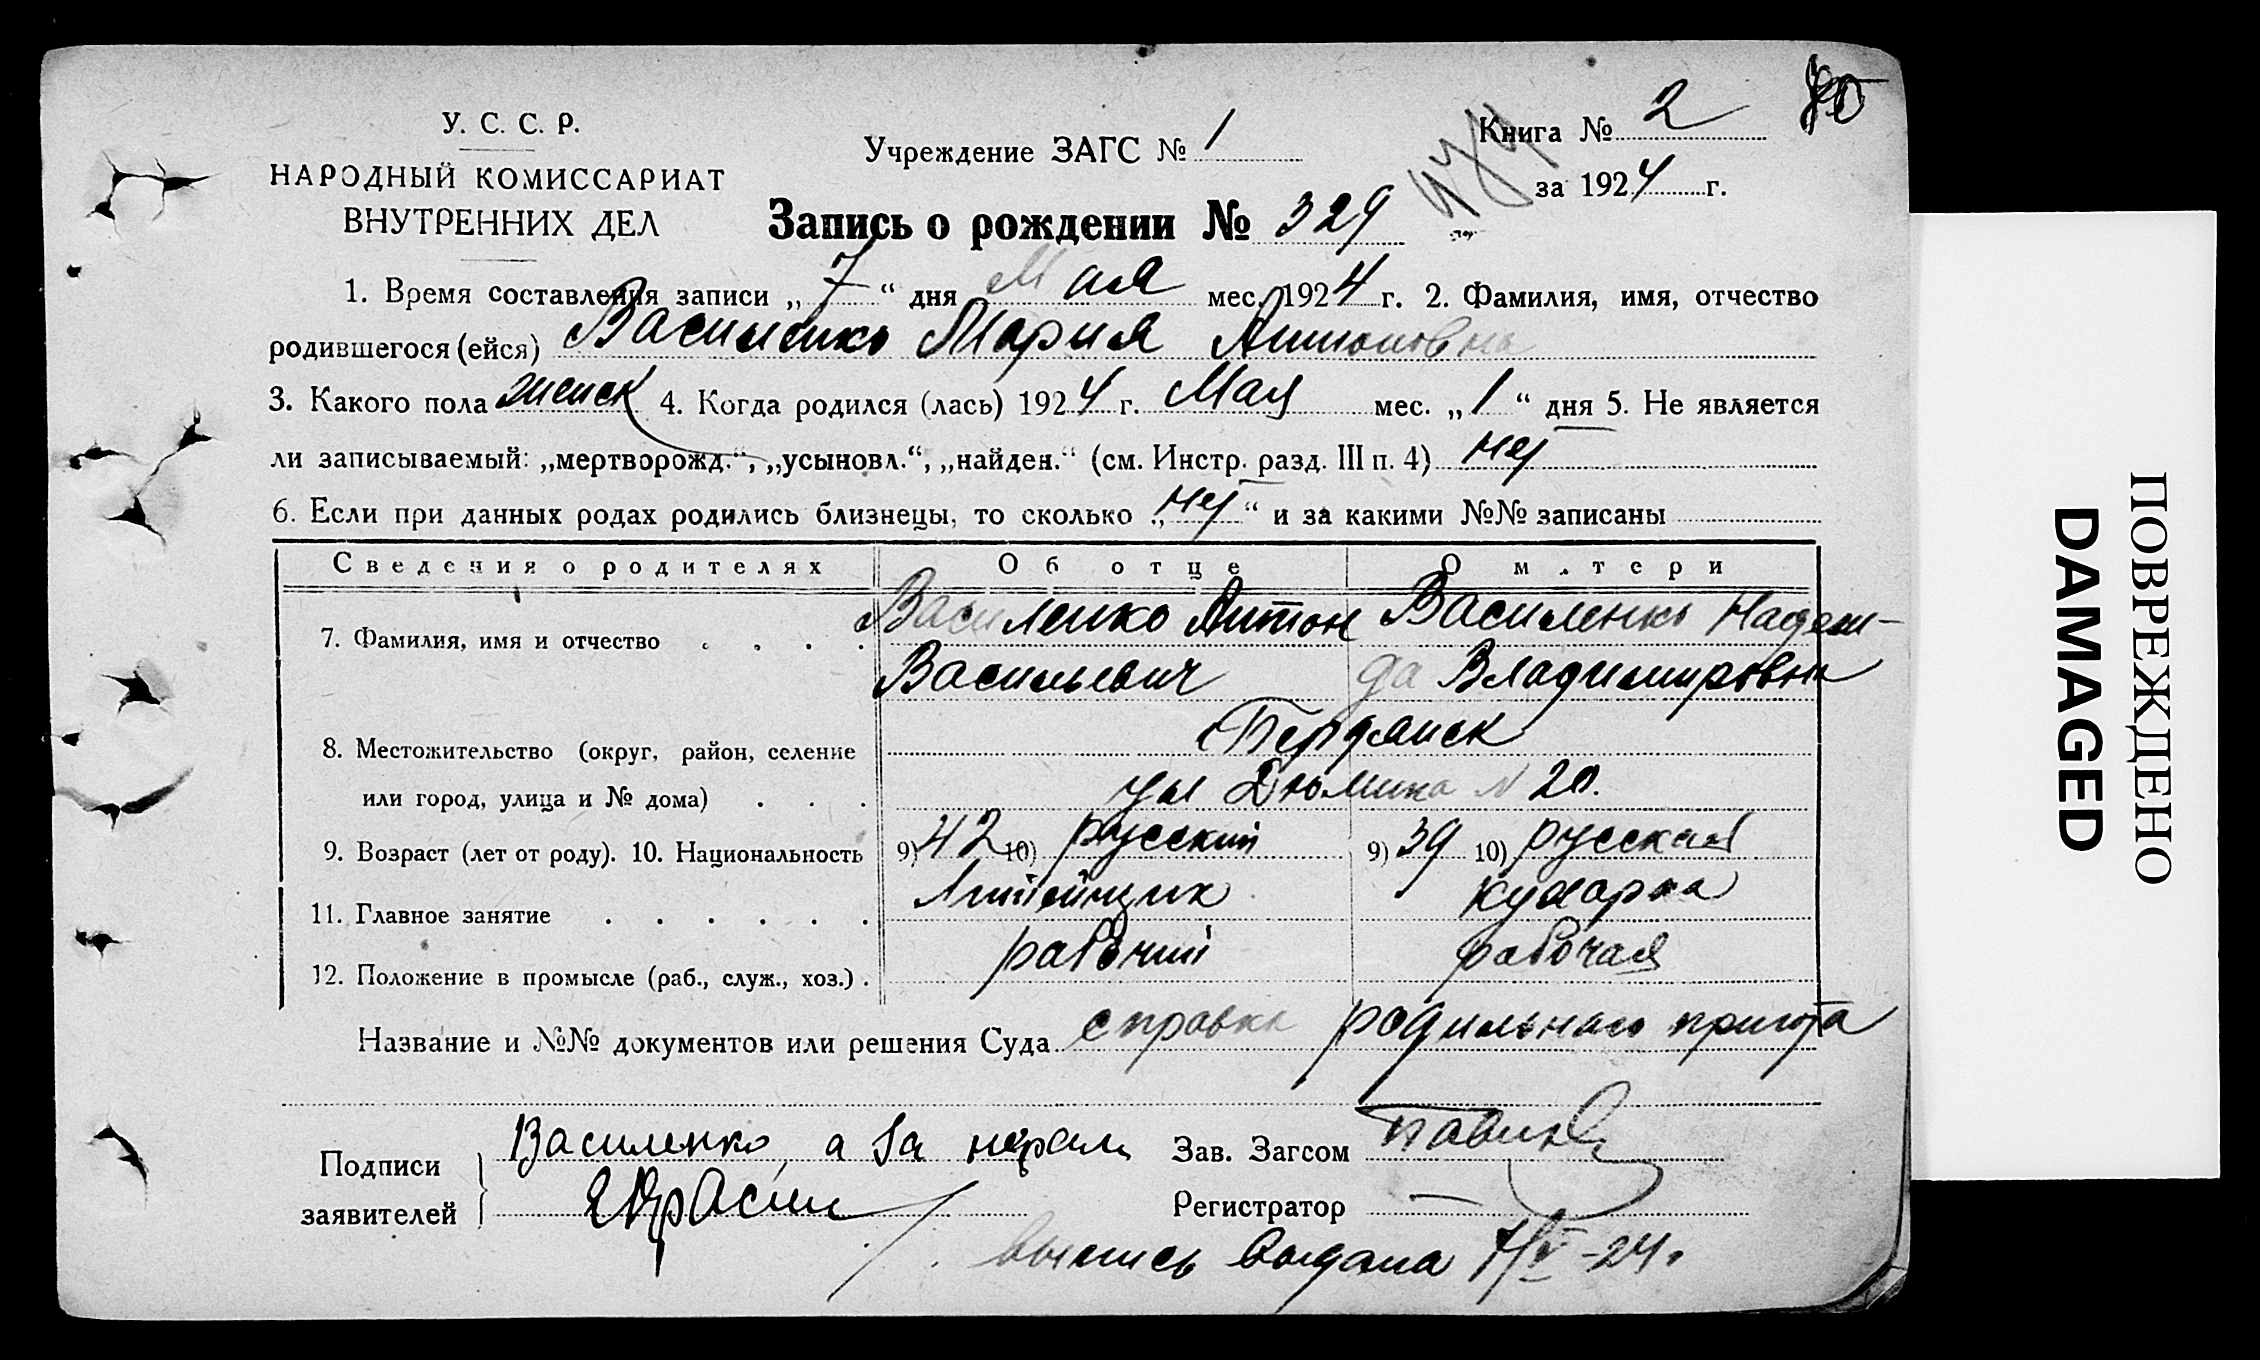 У. С. С. Р.
НАРОДНЫЙ КОМИССАРИАТ
ВНУТРЕННИХ ДЕЛ
Учреждение ЗАГС № 1
Книга № 2
за 1924 г.
Запись о рождении № 329
1. Время составления записи „7“ дня Мая мес. 1924 г. 2. Фамилия, имя, отчество
родившегося (ейся) Василенко Мария Антоновна
3. Какого пола женск 4. Когда родился (лась) 1924 г. Мая мес. „1“ дня 5. Не является
ли записываемый: „мертворожд.“, „усыновл.“, „найден.“ (см. Инстр. разд. III п. 4) нет
6. Если при данных родах родились близнецы, то сколько „нет“ и за какими №№ записаны
Сведения о родителях Об отце О м.тери
7. Фамилия, имя и отчество Василенко Антон Василенко Надеж-
Васильевич да Владимировна
8. Местожительство (округ, район, селение Бердянск
или город, улица и № дома) ул Дюмина N 20.
9. Возраст (лет от роду). 10. Национальность 9) 42 10) русский 9) 39 10) русская
11. Главное занятие Литейщик кухарка
12. Положение в промысле (раб., служ., хоз.) рабочий рабочая
Название и №№ документов или решения Суда справка родильного приюта
Подписи заявителей Василенко, а за неграм
Зав. Загсом
Регистратор —
выпись выдана 7/V-24.
ПОВРЕЖДЕНО
DAMAGED